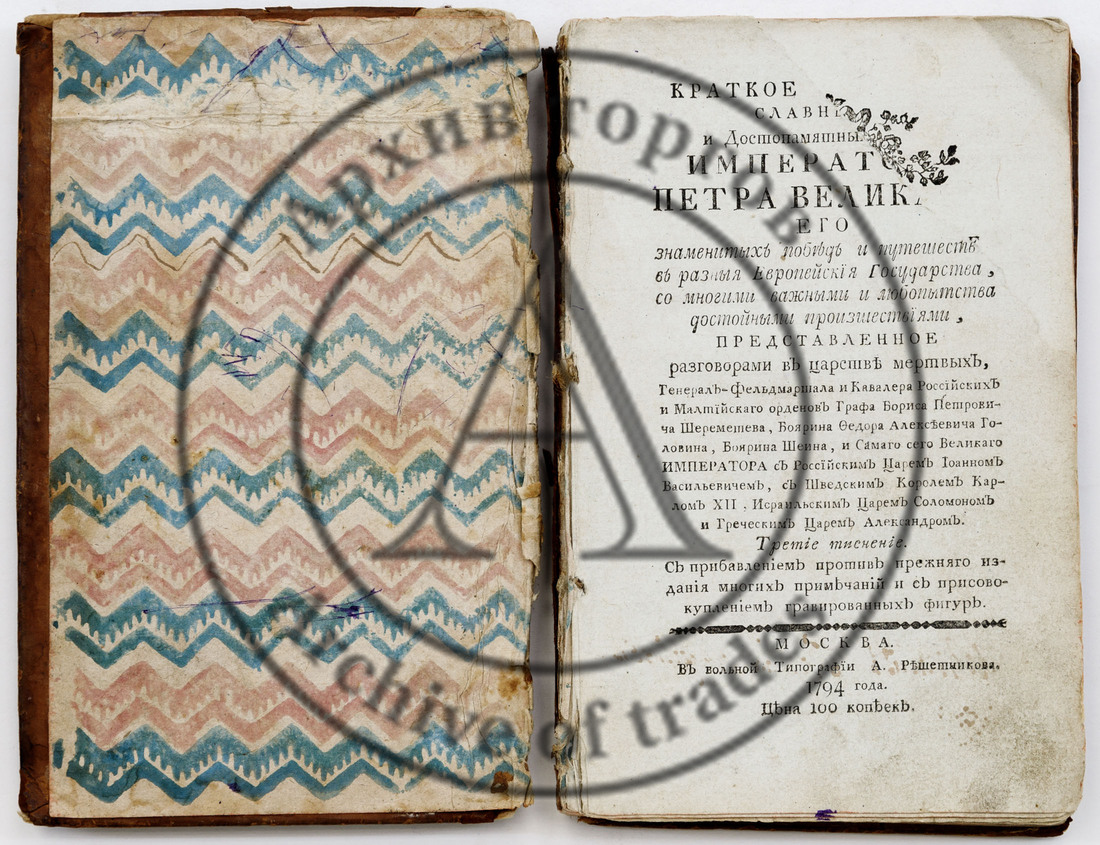 КРАТКОЕ
СЛАВН
и Достопамятны
ИМПЕРАТО
ПЕТРА ВЕЛИК
ЕГО
знаменитыхъ побѣдъ и путешеств
въ разныя Европейскія Государства,
со многими важными и любопытства
достойными произшествіями,
ПРЕДСТАВЛЕННОЕ
разговорами въ царствѣ мертвыхъ,
Генералъ-Фельдмаршала и Кавалера Россїйскихъ
и Малтїйскаго орденовъ Графа Бориса Петрови-
ча Шереметева, Боярина Ѳедора Алексѣевича Го-
ловина, Боярина Шеина, и Самаго сего Великаго
ИМПЕРАТОРА съ Россїйскимъ Царемъ Іоанномъ
Васильевичемъ, съ Шведскимъ Королемъ Кар-
ломъ XII, Израильскимъ Царемъ Соломономъ
и Греческимъ Царемъ Александромъ.
Третіе тисненіе.
Съ прибавленіемъ противъ прежняго из-
данія многихъ примѣчаній и съ присово-
купленіемъ гравированныхъ фигуръ.
МОСКВА.
Въ вольной Типографїи А. Рѣшетникова,
1794 года.
Цѣна 100 копѣекъ.
Архив торговъ
Archive of trades